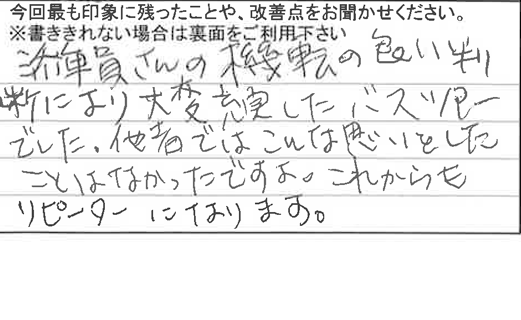 今回最も印象に残ったことや、改善点をお聞かせください。
※書ききれない場合は裏面をご利用下さい
添乗員さんの機転の良い判
断により大変充実したバスツアー
でした。他者ではこんな思いをした
ことはなかったですよ。これからも
リピーターになります。